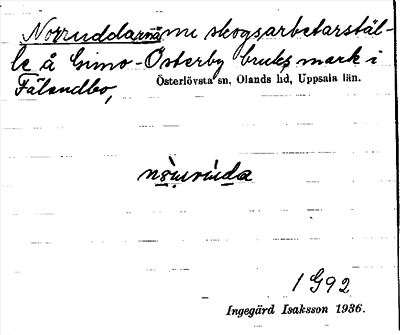 Norruddarna, nu skogsarbetarstäl-
le å Gimo-Österby bruks mark i
Fälandbo, Österlövsta sn, Olands hd, Uppsala län.
1992
Ingegärd Isaksson 1936.